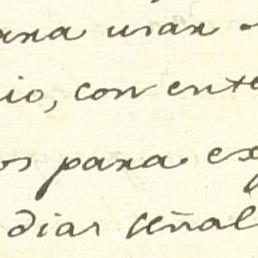 ara usar
io, con ente
os para ex
dias señal